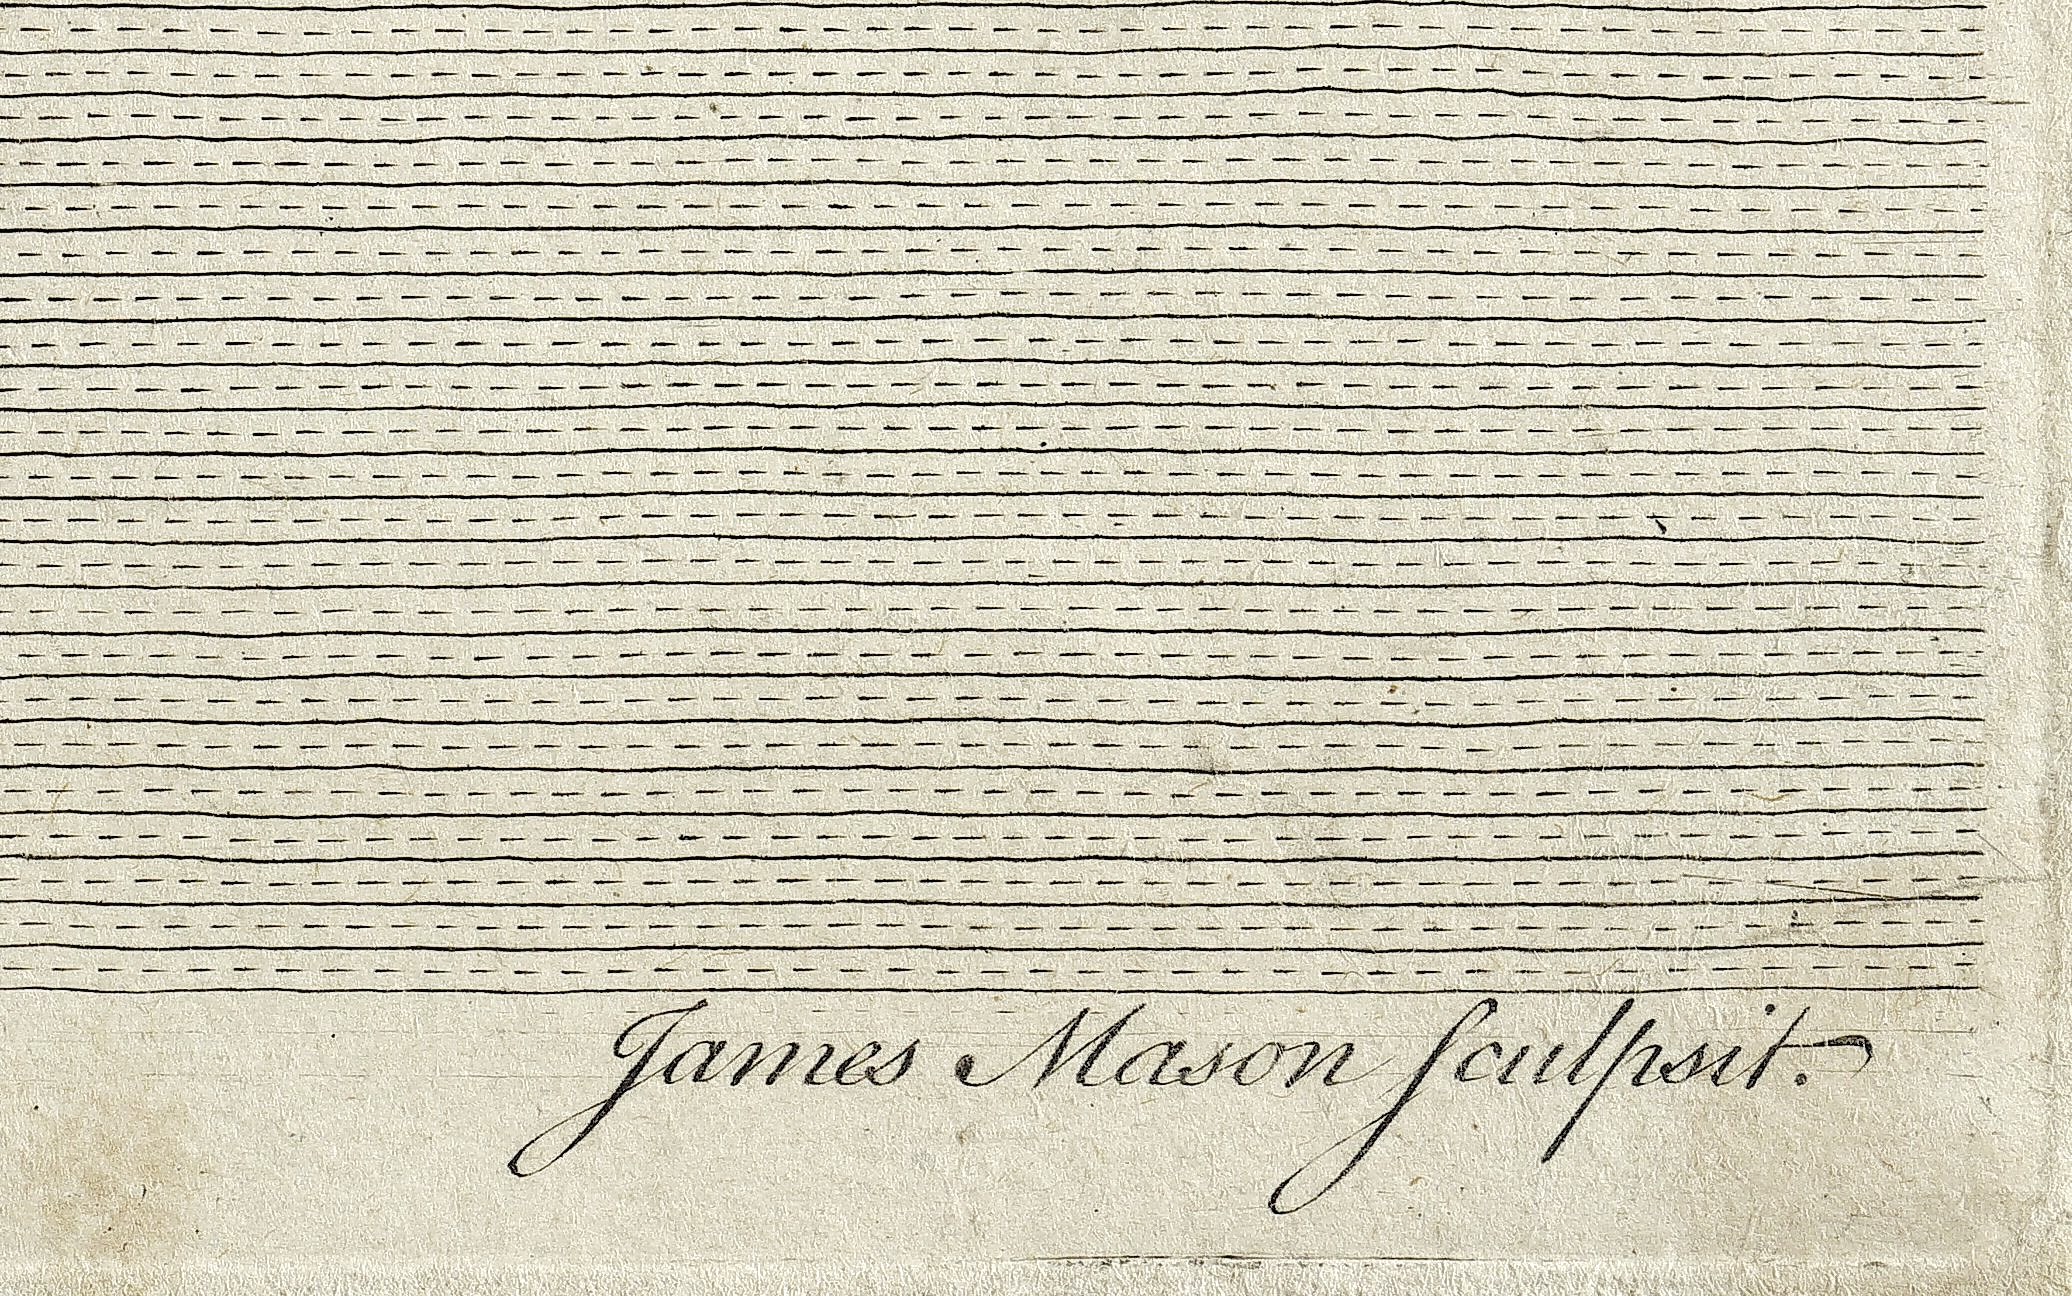 James Mason Sculpsit.